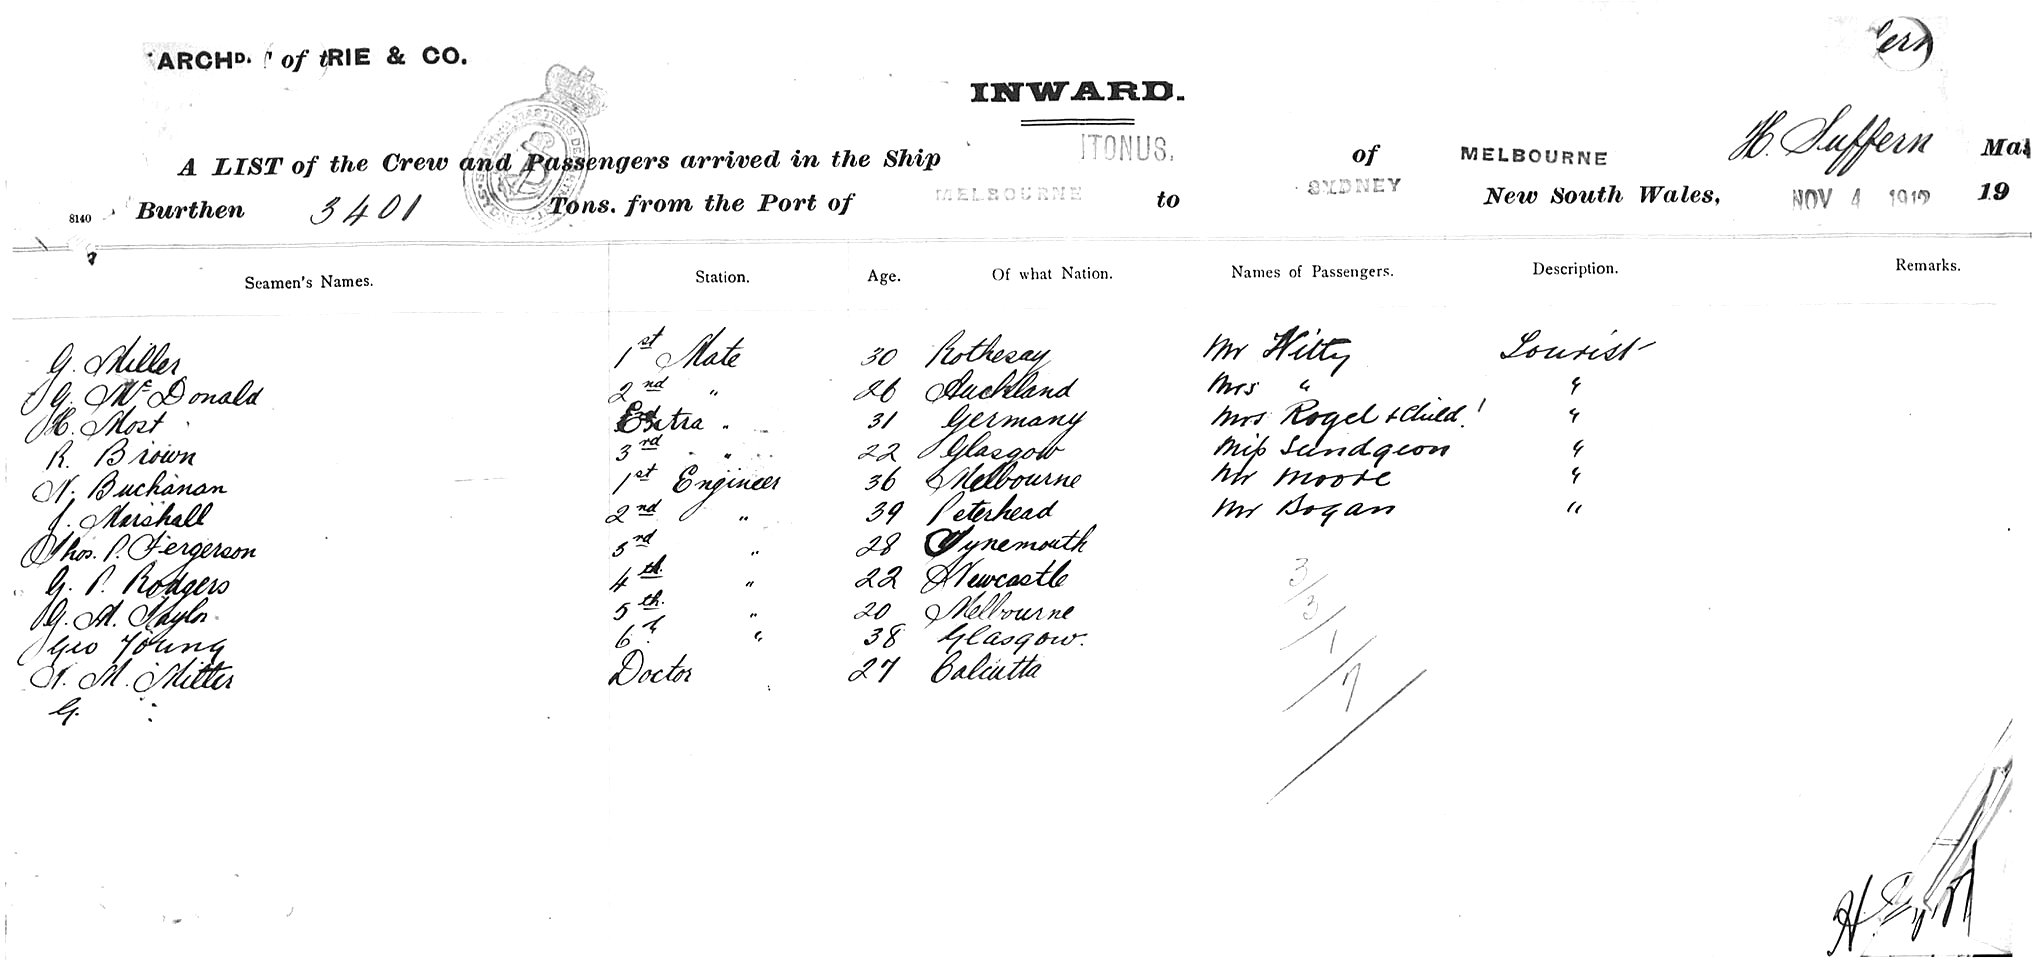 ARCHD. of RIE & CO.
INWARD.
A LIST of the Crew and Passengers arrived in the Ship ITONUS. of MELBOURNE H. Suffern Mas
8140 Burthen 3401 Tons. from the Port of MELBOURNE to SYDNEY New South Wales, NOV 4 1912 19
Seamen's Names. Station. Age. Of what Nation. Names of Passengers. Description. Remarks.
G. Miller 1st Mate 30 Rothesay Mr Witty Tourist
G. McDonald 2nd " 26 Auckland Mrs " "
H. Most Extra " 31 Germany Mrs Rogel & Child "
R. Brown 3rd " 22 Glasgow Miss Sundgeon "
N. Buchanan 1st Engineer 36 Melbourne Mr Moore "
J. Marshall 2nd " 39 Peterhead Mr Bogan "
Thos. P. Fergerson 3rd " 28 Tynemouth
G. P. Rodgers 4th " 22 Newcastle
G. A. Taylor 5th " 20 Melbourne
Geo Young 6th " 38 Glasgow.
M. Mitter Doctor 27 Calcutta
G.
3/3/1/7